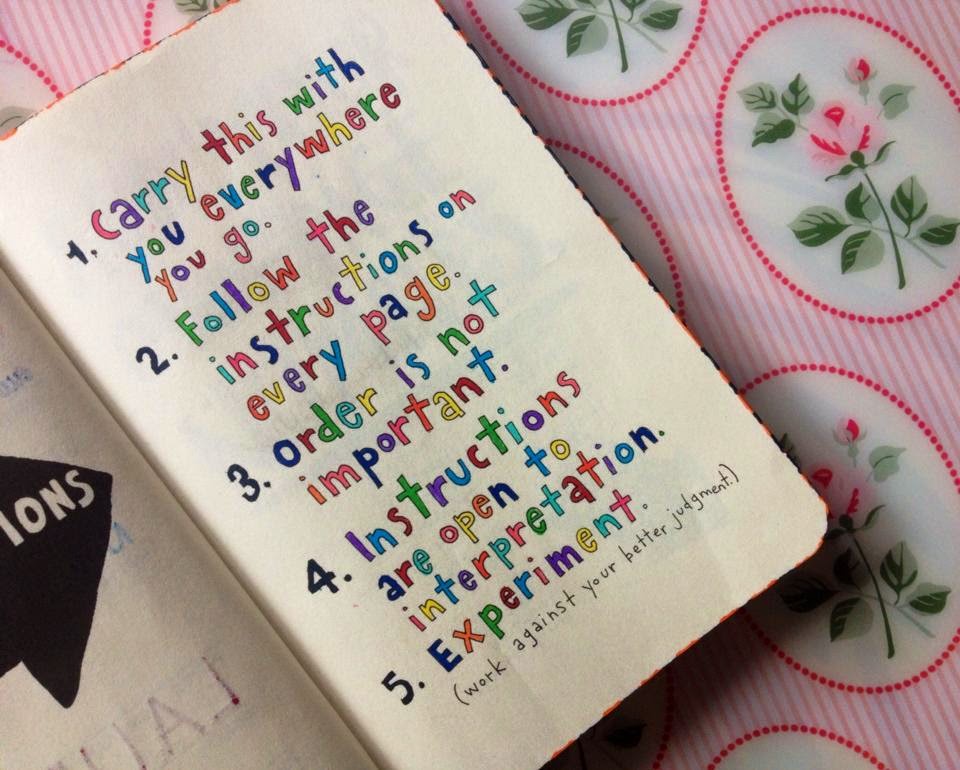 IONS
1. Carry this with
you everywhere
you go.
2. Follow the
instructions on
every page.
3. Order is not
important.
4. Instructions
are open to
interpretation.
5. Experiment.
(work against your better judgment.)